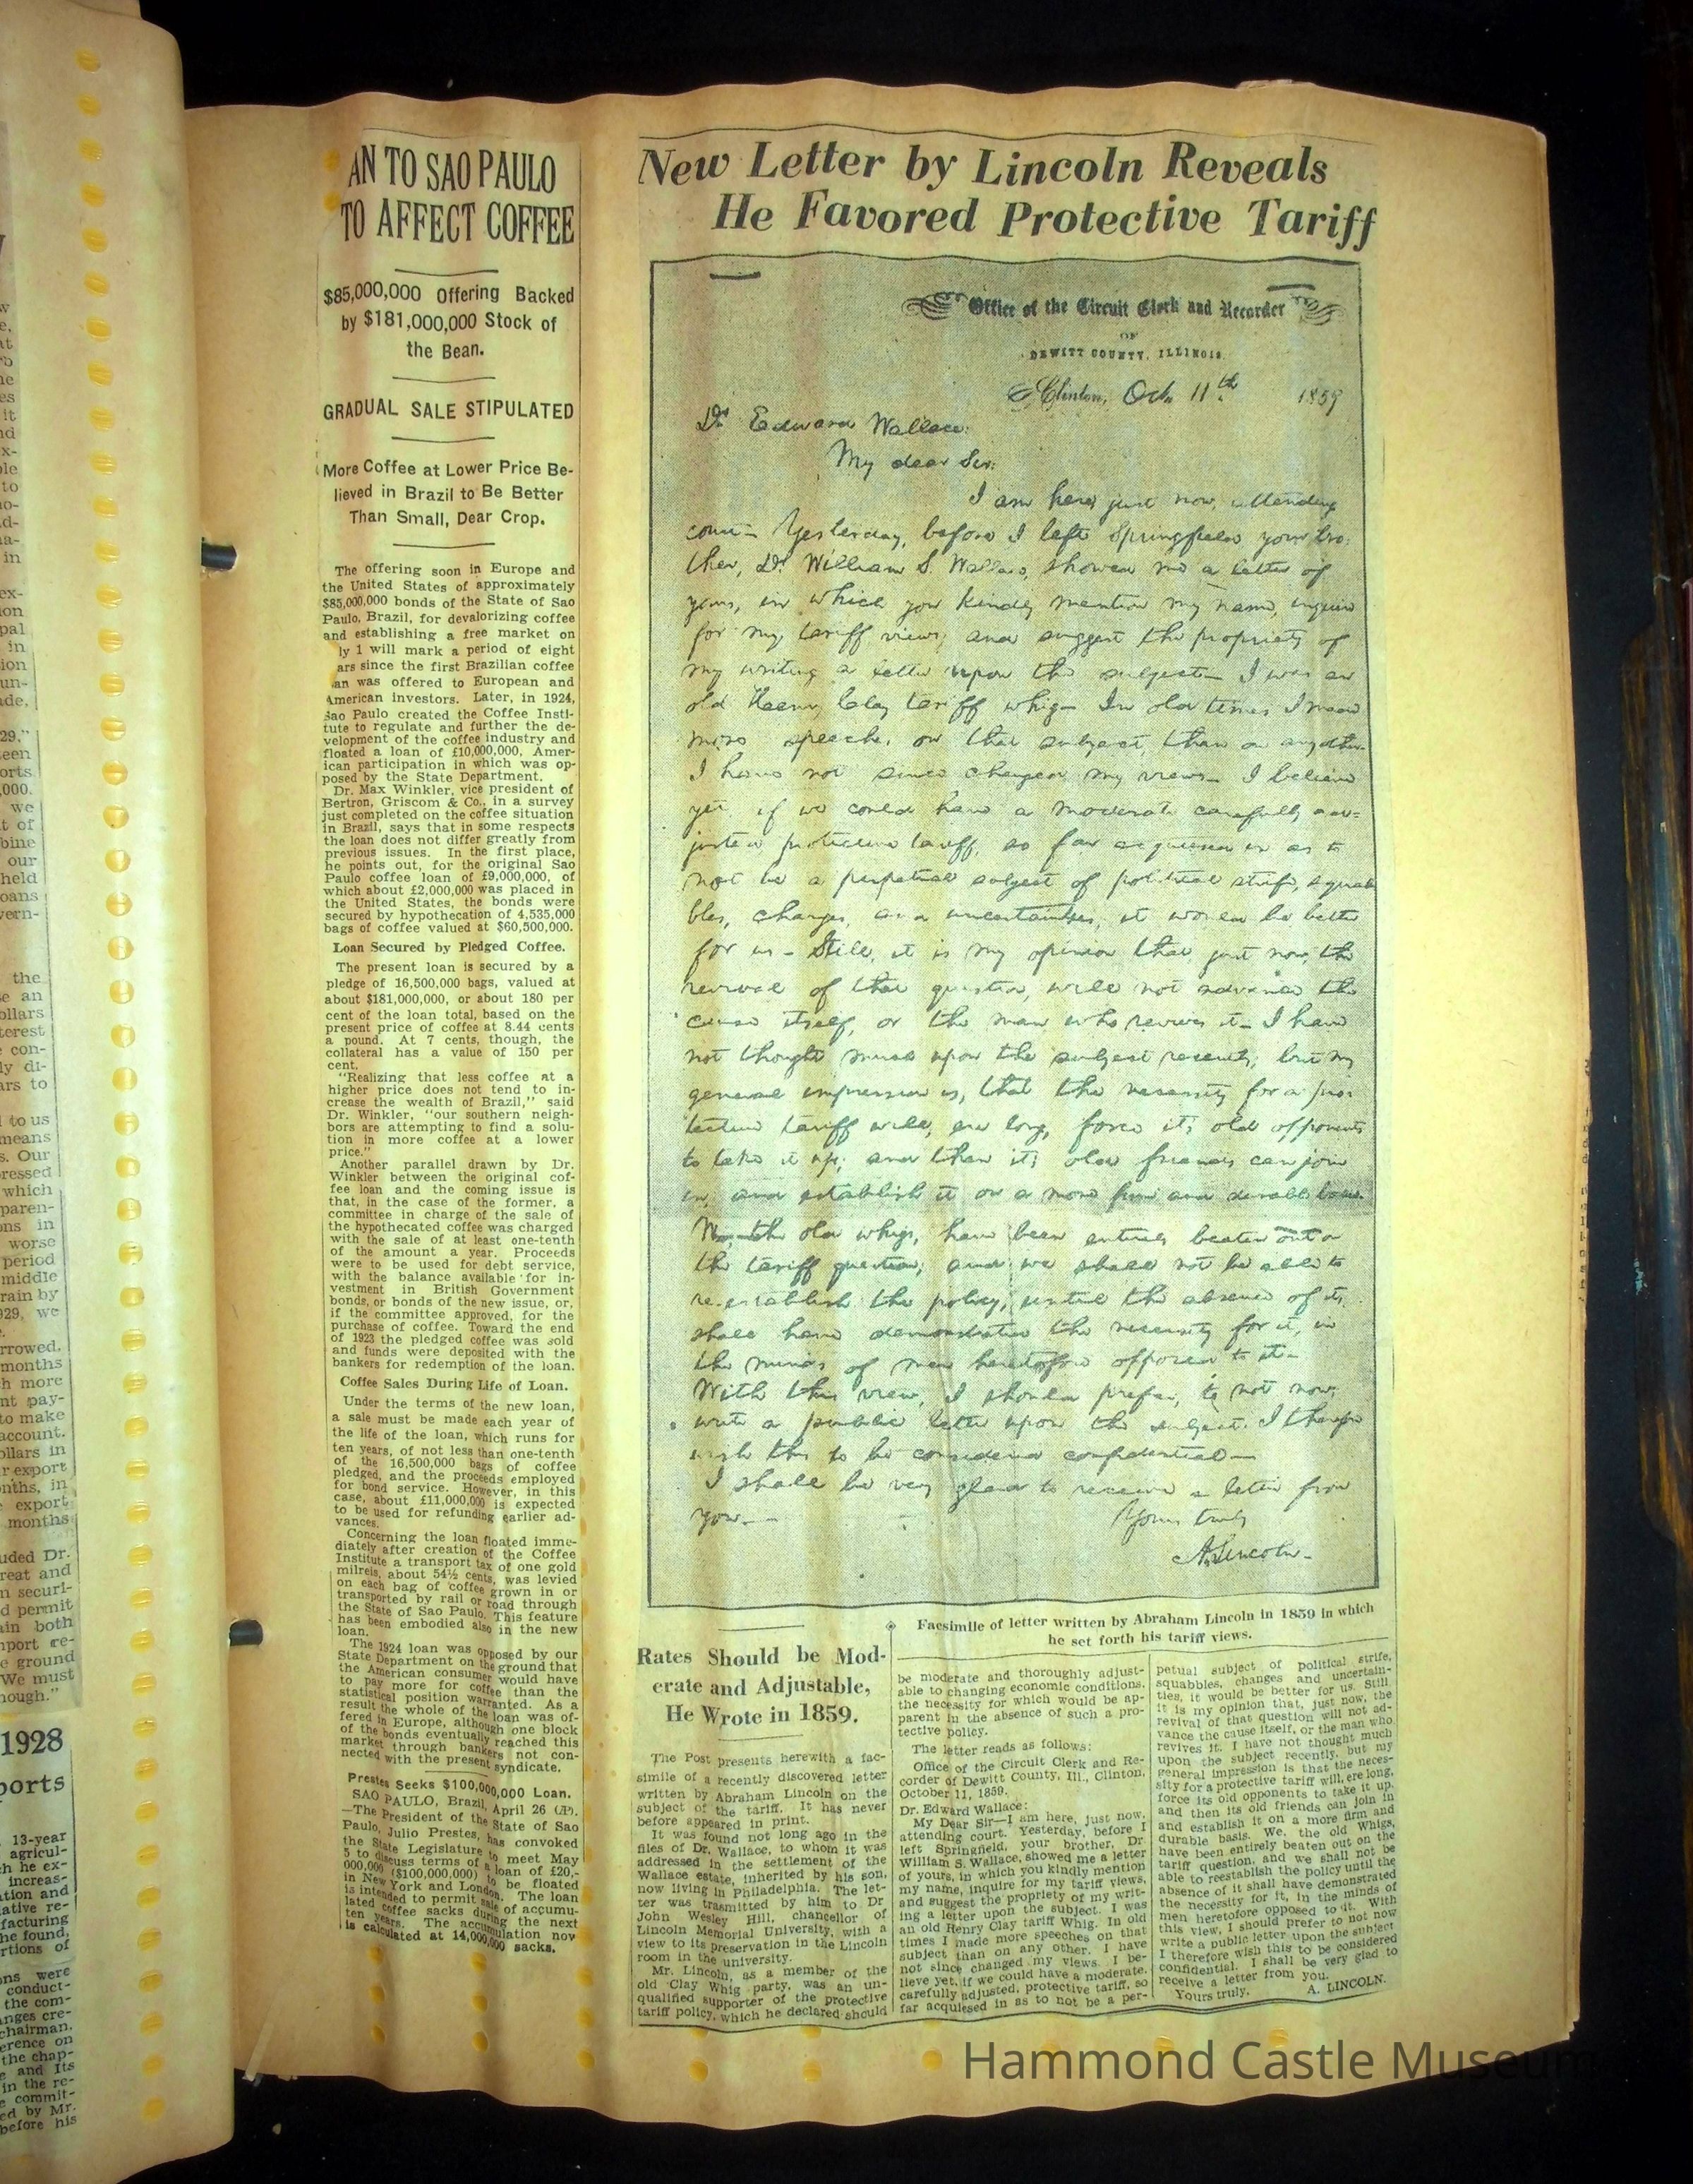 AN TO SAO PAULO
TO AFFECT COFFEE
$85,000,000 Offering Backed
by $181,000,000 Stock of
the Bean.
GRADUAL SALE STIPULATED
More Coffee at Lower Price Be-
lieved in Brazil to Be Better
Than Small, Dear Crop.
The offering soon in Europe and
the United States of approximately
$85,000,000 bonds of the State of Sao
Paulo, Brazil, for devalorizing coffee
and establishing a free market on
ly 1 will mark a period of eight
ars since the first Brazilian coffee
an was offered to European and
American investors. Later, in 1924,
Sao Paulo created the Coffee Insti-
tute to regulate and further the de-
velopment of the coffee industry and
floated a loan of £10,000,000, Amer-
ican participation in which was op-
posed by the State Department.
Dr. Max Winkler, vice president of
Bertron, Griscom & Co., in a survey
just completed on the coffee situation
in Brazil, says that in some respects
the loan does not differ greatly from
previous issues. In the first place,
he points out, for the original Sao
Paulo coffee loan of £9,000,000, of
which about £2,000,000 was placed in
the United States, the bonds were
secured by hypothecation of 4,535,000
bags of coffee valued at $60,500,000.
Loan Secured by Pledged Coffee.
The present loan is secured by a
pledge of 16,500,000 bags, valued at
about $181,000,000, or about 180 per
cent of the loan total, based on the
present price of coffee at 8.44 cents
a pound. At 7 cents, though, the
collateral has a value of 150 per
cent.
"Realizing that less coffee at a
higher price does not tend to in-
crease the wealth of Brazil," said
Dr. Winkler, "our southern neigh-
bors are attempting to find a solu-
tion in more coffee at a lower
price."
Another parallel drawn by Dr.
Winkler between the original cof-
fee loan and the coming issue is
that, in the case of the former, a
committee in charge of the sale of
the hypothecated coffee was charged
with the sale of at least one-tenth
of the amount a year. Proceeds
were to be used for debt service,
with the balance available for in-
vestment in British Government
bonds, or bonds of the new issue, or,
if the committee approved, for the
purchase of coffee. Toward the end
of 1923 the pledged coffee was sold
and funds were deposited with the
bankers for redemption of the loan.
Coffee Sales During Life of Loan.
Under the terms of the new loan,
a sale must be made each year of
the life of the loan, which runs for
ten years, of not less than one-tenth
of the 16,500,000 bags of coffee
pledged, and the proceeds employed
for bond service. However, in this
case, about £11,000,000 is expected
to be used for refunding earlier ad-
vances.
Concerning the loan floated imme-
diately after creation of the Coffee
Institute a transport tax of one gold
milreis, about 54½ cents, was levied
on each bag of coffee grown in or
transported by rail or road through
the State of Sao Paulo. This feature
has been embodied also in the new
loan.
The 1924 loan was opposed by our
State Department on the ground that
the American consumer would have
to pay more for coffee than the
statistical position warranted. As a
result the whole of the loan was of-
fered in Europe, although one block
of the bonds eventually reached this
market through bankers not con-
nected with the present syndicate.
Prestes Seeks $100,000,000 Loan.
SAO PAULO, Brazil, April 26 (AP).
—The President of the State of Sao
Paulo, Julio Prestes, has convoked
the State Legislature to meet May
5 to discuss terms of a loan of £20,-
000,000 ($100,000,000) to be floated
in New York and London. The loan
is intended to permit sale of accumu-
lated coffee sacks during the next
ten years. The accumulation now
is calculated at 14,000,000 sacks.
New Letter by Lincoln Reveals
He Favored Protective Tariff
Office of the Circuit Clerk and Recorder
OF
DEWITT COUNTY, ILLINOIS.
Clinton, Oct. 11th 1859
Dr. Edward Wallace:
My dear Sir:
I am here, just now, attending
court. Yesterday, before I left Springfield, your bro-
ther, Dr. William S. Wallace, showed me a letter of
yours, in which you kindly mention my name, inquire
for my tariff views; and suggest the propriety of
my writing a letter upon the subject. I was an
old Henry Clay tariff whig. In old times I made
more speeches on that subject, than on any other.
I have not since changed my views. I believe
yet, if we could have a moderate, carefully ad-
justed protective tariff, so far acquiesced in, as to
not be a perpetual subject of political strife, squab-
bles, changes, and uncertainties, it would be better
for us. Still, it is my opinion that, just now, the
revival of that question, will not advance the
cause itself, or the man who revives it. I have
not thought much upon the subject recently; but my
general impression is, that the necessity for a pro-
tective tariff will, ere long, force it's old opponents
to take it up; and then it's old friends can join
in, and establish it on a more firm and durable basis.
We, the old whigs, have been entirely beaten out on
the tariff question; and we shall not be able to
re-establish the policy, until the absence of it,
shall have demonstrated the necessity for it, in
the minds of men heretofore opposed to it.
With this view, I should prefer, to not now,
write a public letter upon the subject. I therefore
wish this to be considered confidential.
I shall be very glad to receive a letter from
you.
Yours truly
A. Lincoln.
Facsimile of letter written by Abraham Lincoln in 1859 in which
he set forth his tariff views.
Rates Should be Mod-
erate and Adjustable,
He Wrote in 1859.
The Post presents herewith a fac-
simile of a recently discovered letter
written by Abraham Lincoln on the
subject of the tariff. It has never
before appeared in print.
It was found not long ago in the
files of Dr. Wallace, to whom it was
addressed in the settlement of the
Wallace estate, inherited by his son,
now living in Philadelphia. The let-
ter was trasmitted by him to Dr
John Wesley Hill, chancellor of
Lincoln Memorial University, with a
view to its preservation in the Lincoln
room in the university.
Mr. Lincoln, as a member of the
old Clay Whig party, was an un-
qualified supporter of the protective
tariff policy, which he declared should
be moderate and thoroughly adjust-
able to changing economic conditions,
the necessity for which would be ap-
parent in the absence of such a pro-
tective policy.
The letter reads as follows:
Office of the Circuit Clerk and Re-
corder of Dewitt County, Ill., Clinton,
October 11, 1859.
Dr. Edward Wallace:
My Dear Sir—I am here, just now,
attending court. Yesterday, before I
left Springfield, your brother, Dr
William S. Wallace, showed me a letter
of yours, in which you kindly mention
my name, inquire for my tariff views,
and suggest the propriety of my writ-
ing a letter upon the subject. I was
an old Henry Clay tariff Whig. In old
times I made more speeches on that
subject than on any other. I have
not since changed my views. I be-
lieve yet, if we could have a moderate,
carefully adjusted, protective tariff, so
far acquiesed in as to not be a per-
petual subject of political strife,
squabbles, changes and uncertain-
ties, it would be better for us. Still
it is my opinion that, just now, the
revival of that question will not ad-
vance the cause itself, or the man who
revives it. I have not thought much
upon the subject recently, but my
general impression is that the neces-
sity for a protective tariff will, ere long,
force its old opponents to take it up,
and then its old friends can join in
and establish it on a more firm and
durable basis. We, the old Whigs,
have been entirely beaten out on the
tariff question, and we shall not be
able to reestablish the policy until the
absence of it shall have demonstrated
the necessity for it, in the minds of
men heretofore opposed to it. With
this view, I should prefer to not now
write a public letter upon the subject
I therefore wish this to be considered
confidential. I shall be very glad to
receive a letter from you.
Yours truly, A. LINCOLN.
Hammond Castle Museum